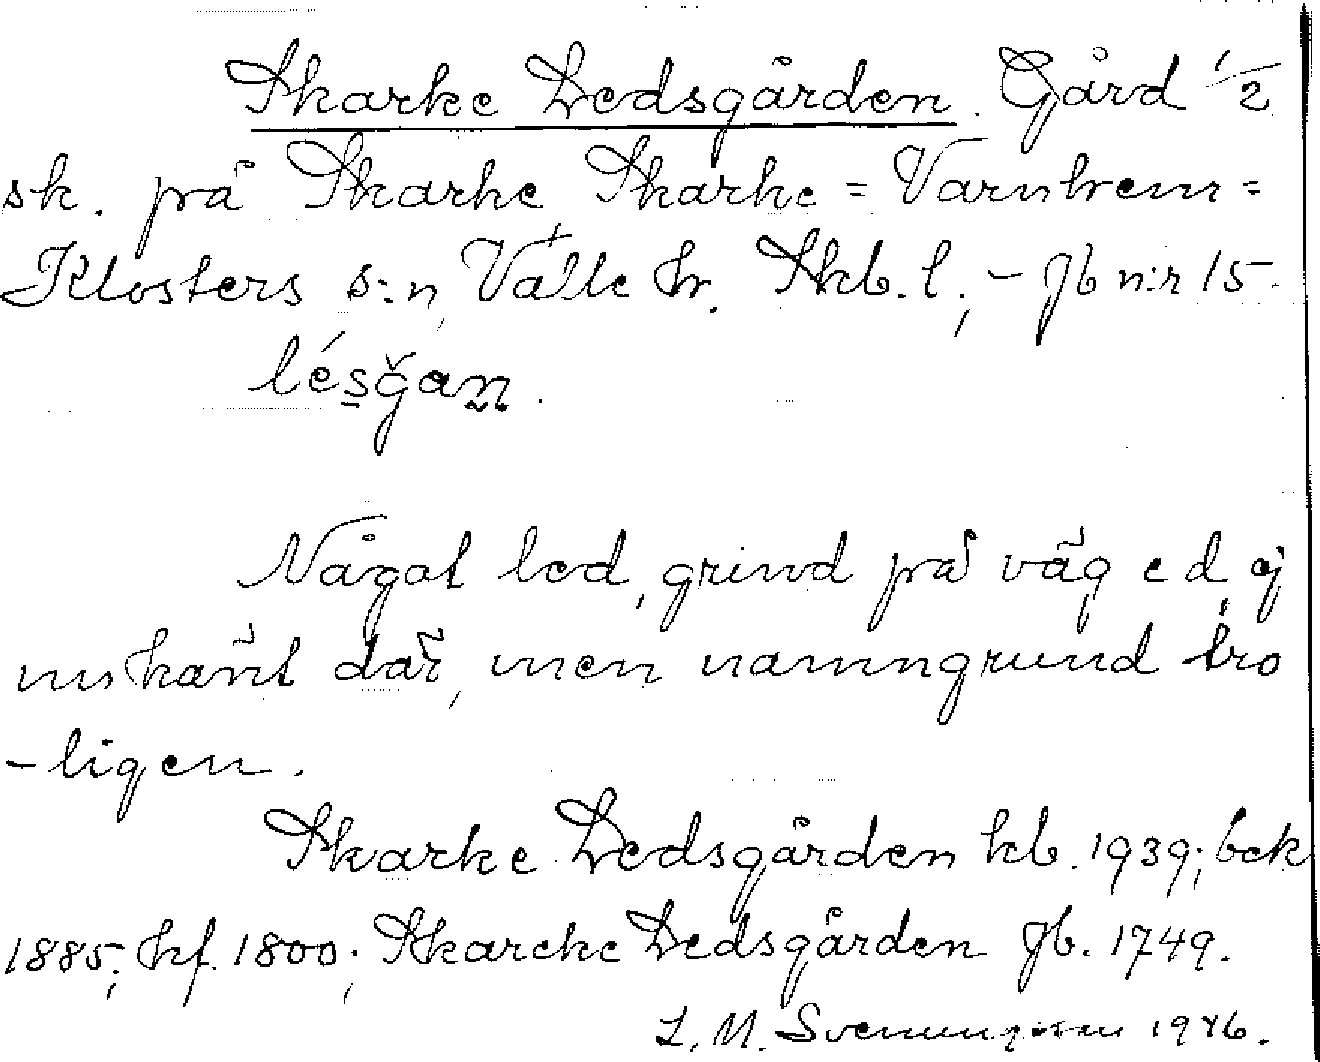 Skarke Ledsgården. Gård 1/2
sk. på Skarke, Skarke = Varnhem =
Klosters s:n, Valle hr. Skb. l.; - Jb n:r 15.
lésǧan.
Något led, grind på väg e d, ej
nu känt där, men namngrund tro
- ligen.
Skarke Ledsgården kb. 1939; bek
1885; hf. 1800; Skarcke Ledsgården Jb. 1749.
L. M. Svenungsson 1946.